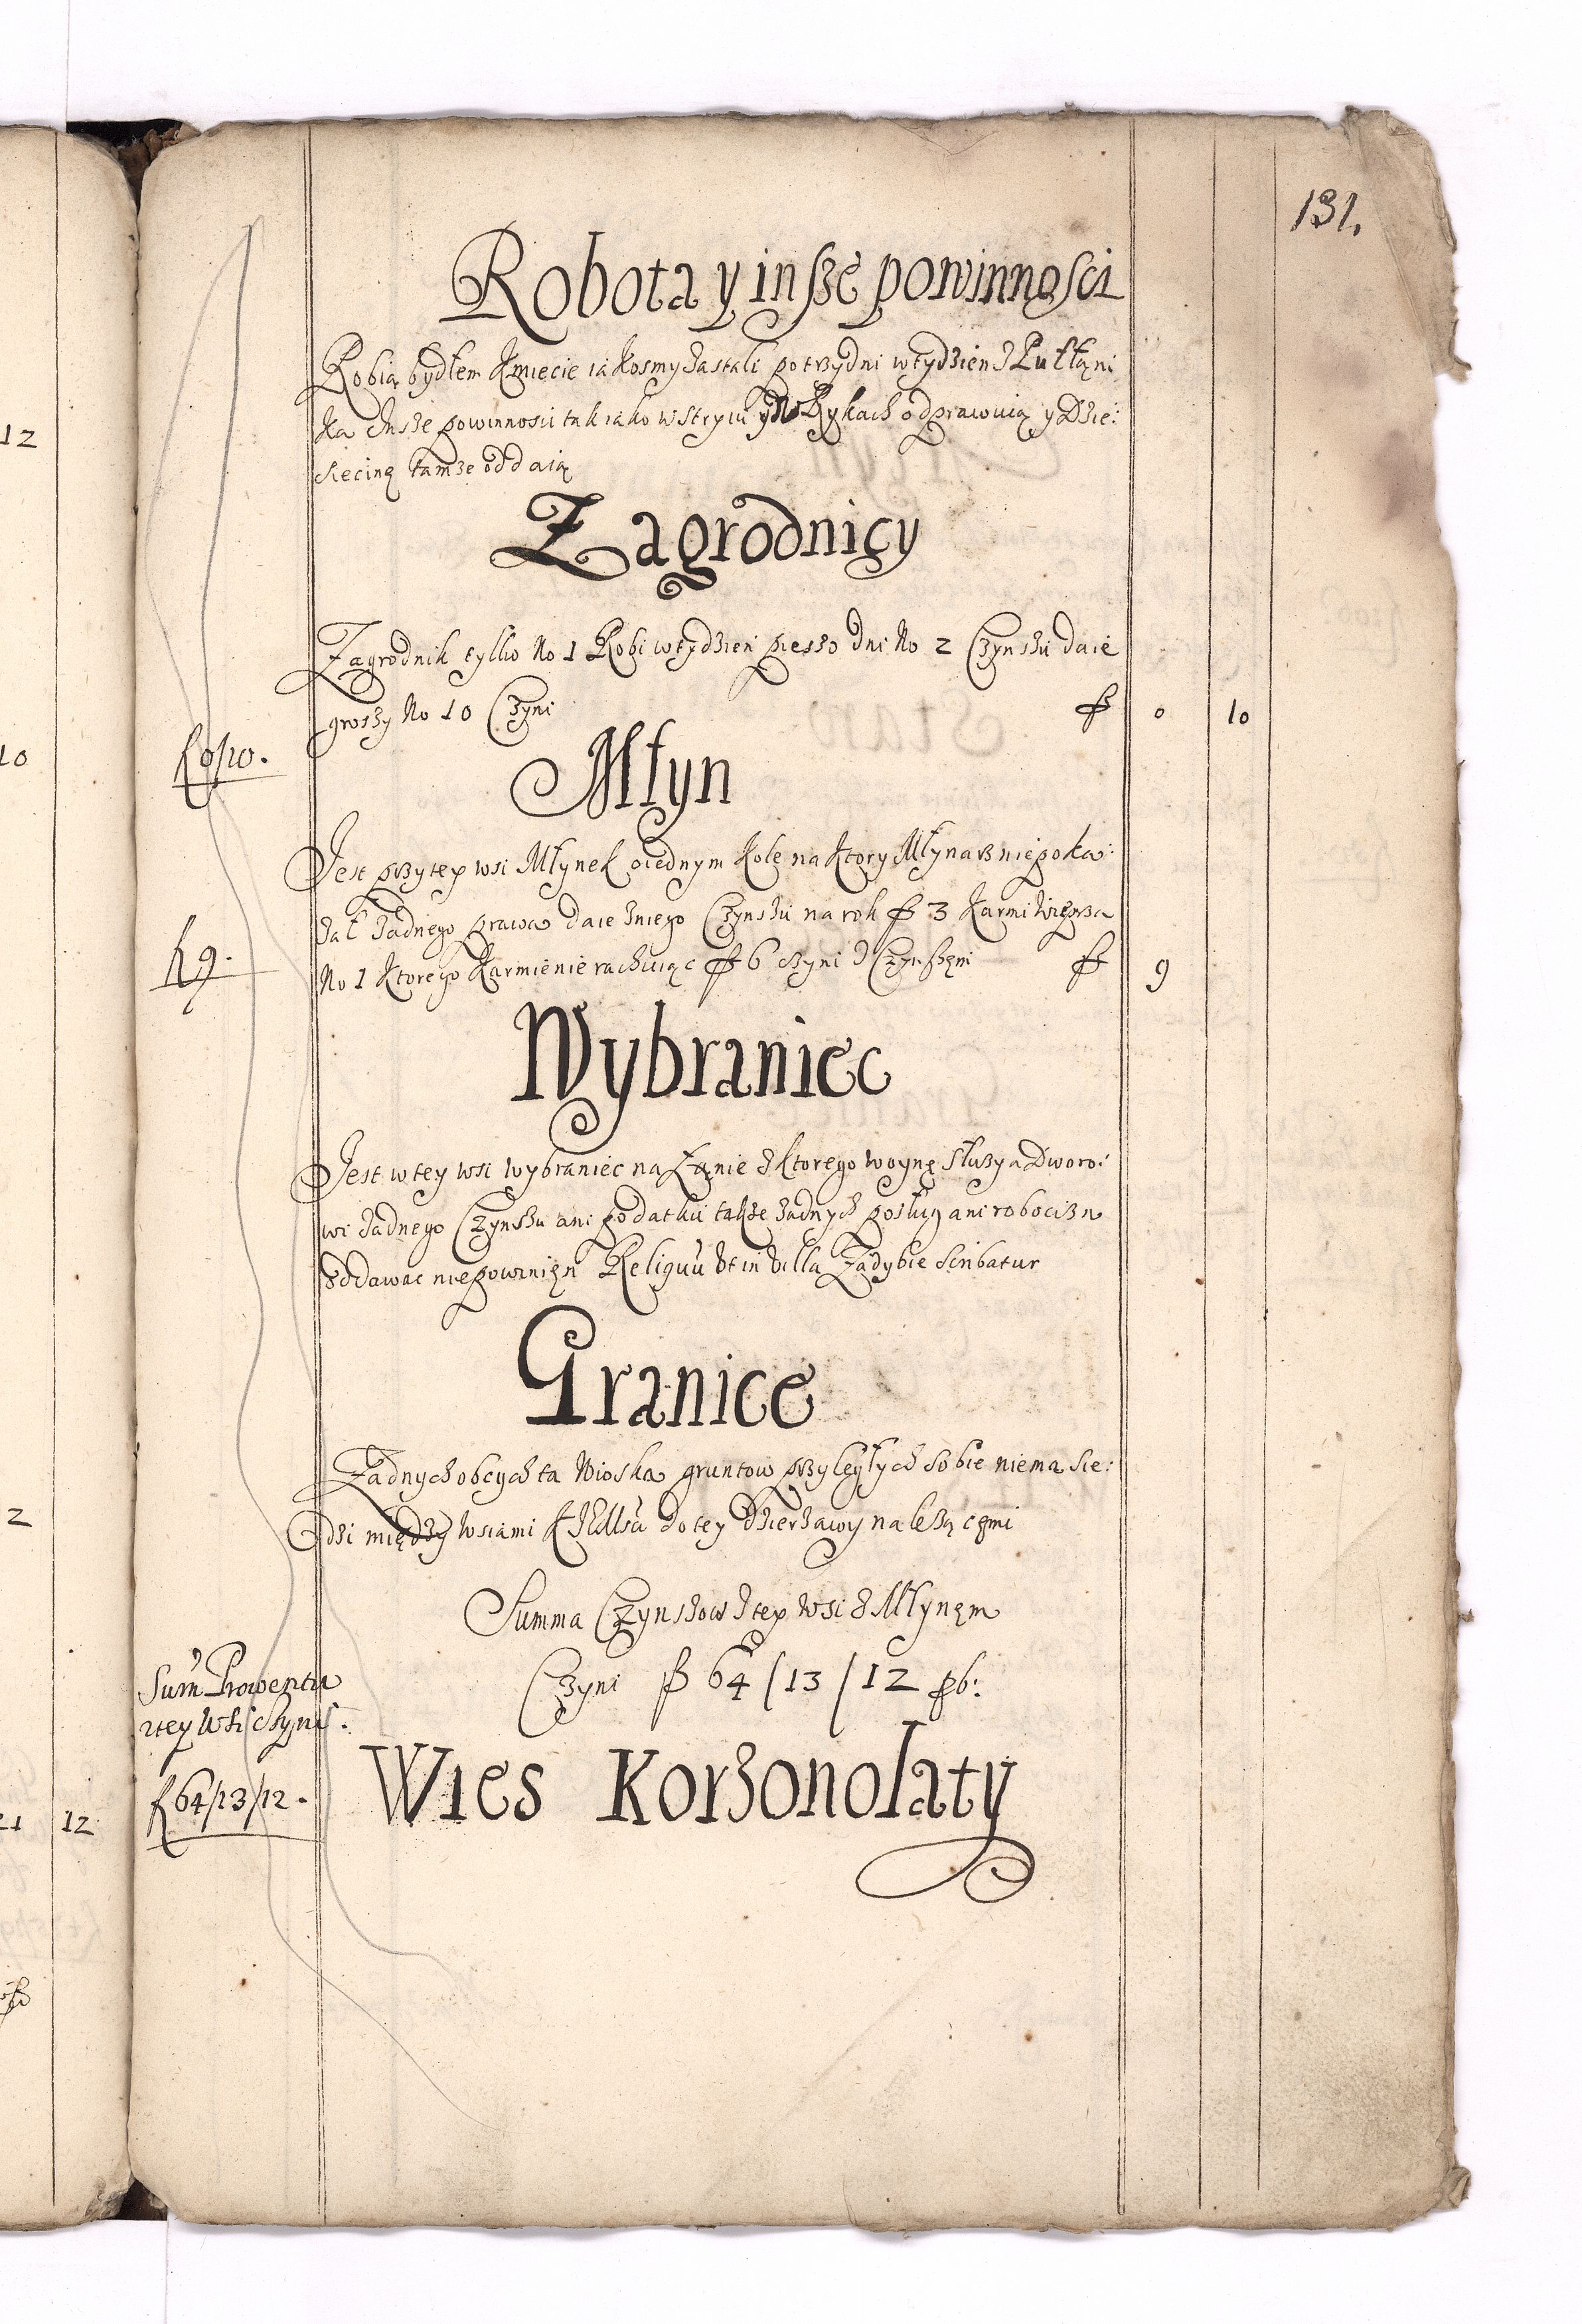 131.
Robota y insze powinnosci
Robią bydłem Kmiecie iakosmy zastali po trzy dni w tydzien z Pułłani
ka Insze powinnosci tak iako w Stryiu y w Rykach odprawuią y Dzie:
siecinę tamze oddaią
Zagrodnicy
Zagrodnik tylko No 1 Robi w tydzien pieszo dni No 2 Czynszu daie
groszy No 10 Czyni f 0 10
f 0/10.
Młyn
Jest przy tey wsi Młynek o iednym Kole na Ktory Młynarz nie poka:
zał zadnego prawa daie zniego Czynszu na rok f 3 Karmi Wieprza
No 1 Ktorego Karmienie rachuiąc f 6 czyni z Czynszęm f 9
f 9.
Wybraniec
Jest w tey wsi wybraniec na Łanie z Ktorego woynę słuzy a Dworo:
wi zadnego Czynszu ani podatku takze zadnych posług ani robocizn
oddawac niepowinięn Reliquu ut in Villa Zadybie scribatur
Granice
Zadnych obcych ta Wioska gruntow przyległych sobie niema sie:
dzi między wsiami do tey dzierzawy nalezącęmi
Summa Czynszow z tey Wsi z Młynęm
Czyni f 64/13/12 pb:
Sum Prowentu
z tey Wsi Czyni.
f 64/13/12.
Wies Korzonolaty
12
10
2
21 12